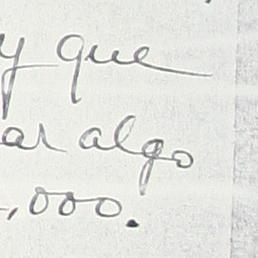 y que
ar algo
,000.